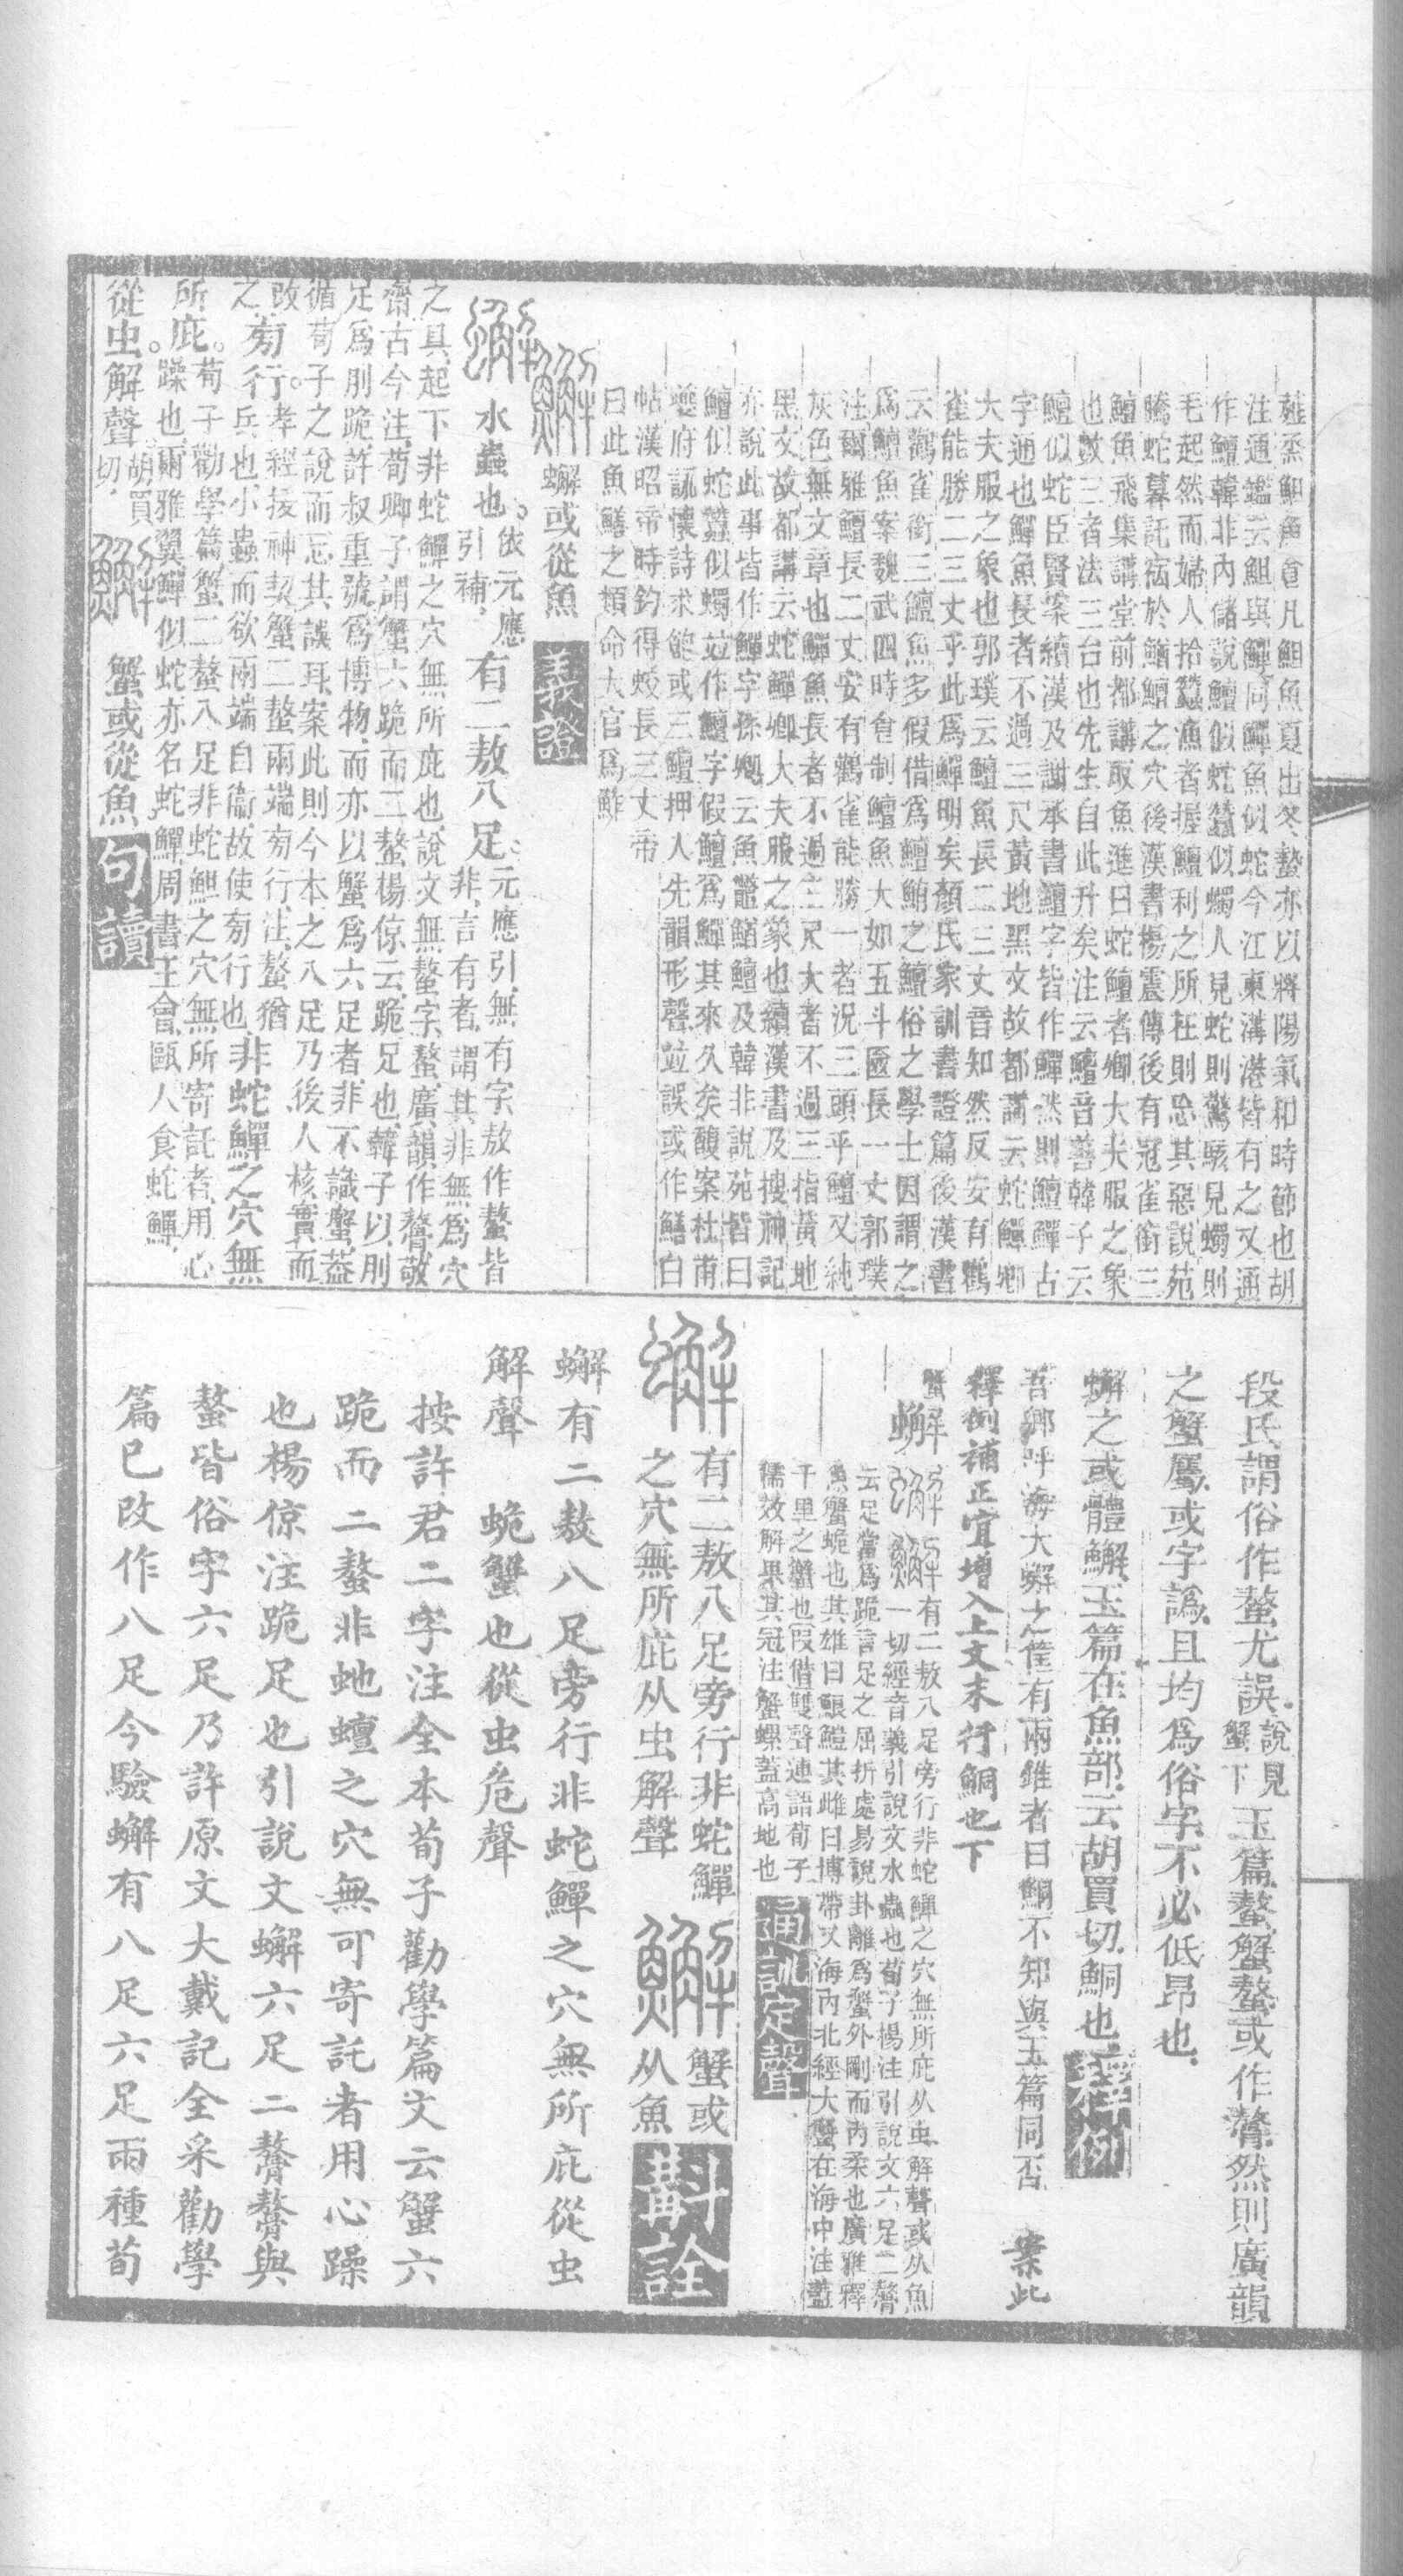 注通鑑云䱇與鱓同鱓魚似蛇今江東溝港皆有之又通
作鱣韓非內儲說鱣似蛇蠶似蠋人見蛇則驚駭見蠋則
毛起然而婦人拾蠶漁者握鱣利之所在則忘其惡說苑
騰蛇暮託宿於鰌鱣之穴後漢書楊震傳後有冠雀銜三
鱣魚飛集講堂前都講取魚進曰蛇鱣者卿大夫服之象
也數三者法三台也先生自此升矣注云鱣音善韓子云
鱣似蛇臣賢案續漢及謝承書鱣字皆作鱓然則鱣鱓古
字通也鱓魚長者不過三尺黃地黑文故都講云蛇鱓卿
大夫服之象也郭璞云鱣魚長二三丈音知然反安有鸛
雀能勝二三丈乎此爲鱓明矣顏氏家訓書證篇後漢書
云鸛雀銜三鱣魚多假借爲鱣鮪之鱣俗之學士因謂之
爲鱣魚案魏武四時食制鱣魚大如五斗匳長一丈郭璞
注爾雅鱣長二丈安有鸛雀能勝一者況三頭乎鱣又純
灰色無文章也鱓魚長者不過三尺大者不過三指黃地
黑文故都講云蛇鱓卿大夫服之象也續漢書及搜神記
亦說此事皆作鱓字孫卿云魚鼈鰌鱣及韓非說苑皆曰
鱣似蛇蠶似蠋竝作鱣字假鱣爲鱓其來久矣馥案杜甫
夔府詠懷詩求飽或三鱣押人先韻形聲竝誤或作鱔白
帖漢昭帝時釣得蛟長三丈帝
曰此魚鱔之類命大官爲鮓
蠏或從魚 義證
水蟲也。依元應引補，有二敖八足，元應引，無有字，敖作螯，皆非，言有者，謂其非無爲穴
之具，起下非蛇鱓之穴無所庇也，說文無螯字，螯，廣韻作䥬，敬
齋古今注，荀卿子謂蟹六跪而二螯，楊倞云，跪，足也，韓子以刖
足爲刖跪，許叔重號爲博物，而亦以蟹爲六足者，非不識蟹，蓋
循荀子之說而忘其誤耳，案此則今本之八足，乃後人核實而
改之，旁行。孝經援神契，蟹二螯兩端旁行，注，螯，猶
兵也，小蟲而欲兩端自衞，故使旁行也，非蛇鱓之穴無
所庇。荀子勸學篇，蟹二螯八足，非蛇䱇之穴無所寄託者，用心
躁也，爾雅翼，鱓似蛇，亦名蛇鱓，周書王會，甌人食蛇鱓，
從虫解聲。胡買切， 蟹或從魚 句讀
段氏謂俗作螯尤誤，說見蟹下 玉篇，螯，蟹螯，或作䥬，然則廣韻
之蟹屬，或字譌，且均爲俗字，不必低昂也，
蠏之或體鱰，玉篇在魚部，云胡買切，鮦也， 釋例
吾鄉呼海大蠏之隹有兩錐者曰鮦，不知與玉篇同否 案此
釋例補正宜增入上文末行鮦也下
蟹 蠏 有二敖八足旁行非蛇鱓之穴無所庇从虫解聲或从魚
一切經音義引說文水蟲也荀子楊注引說文六足二䥬
云足當爲跪言足之屈折處易說卦離爲蟹外剛而內柔也廣雅釋
魚蟹蛫也其雄曰鯸鱧其雌曰博帶又海內北經大蟹在海中注蓋
千里之蟹也叚借雙聲連語荀子
儒效解果其冠注蟹螺蓋高地也 通訓定聲
有二敖八足旁行非蛇鱓
之穴無所庇从虫解聲 蟹或
从魚 斠詮
蠏有二敖八足旁行非蛇鱓之穴無所庇從虫
解聲 蛫蟹也從虫危聲
按許君二字注全本荀子勸學篇文云蟹六
跪而二螯非虵蟺之穴無可寄託者用心躁
也楊倞注跪足也引說文蠏六足二䥬䥬與
螯皆俗字六足乃許原文大戴記全采勸學
篇已改作八足今驗蠏有八足六足兩種荀